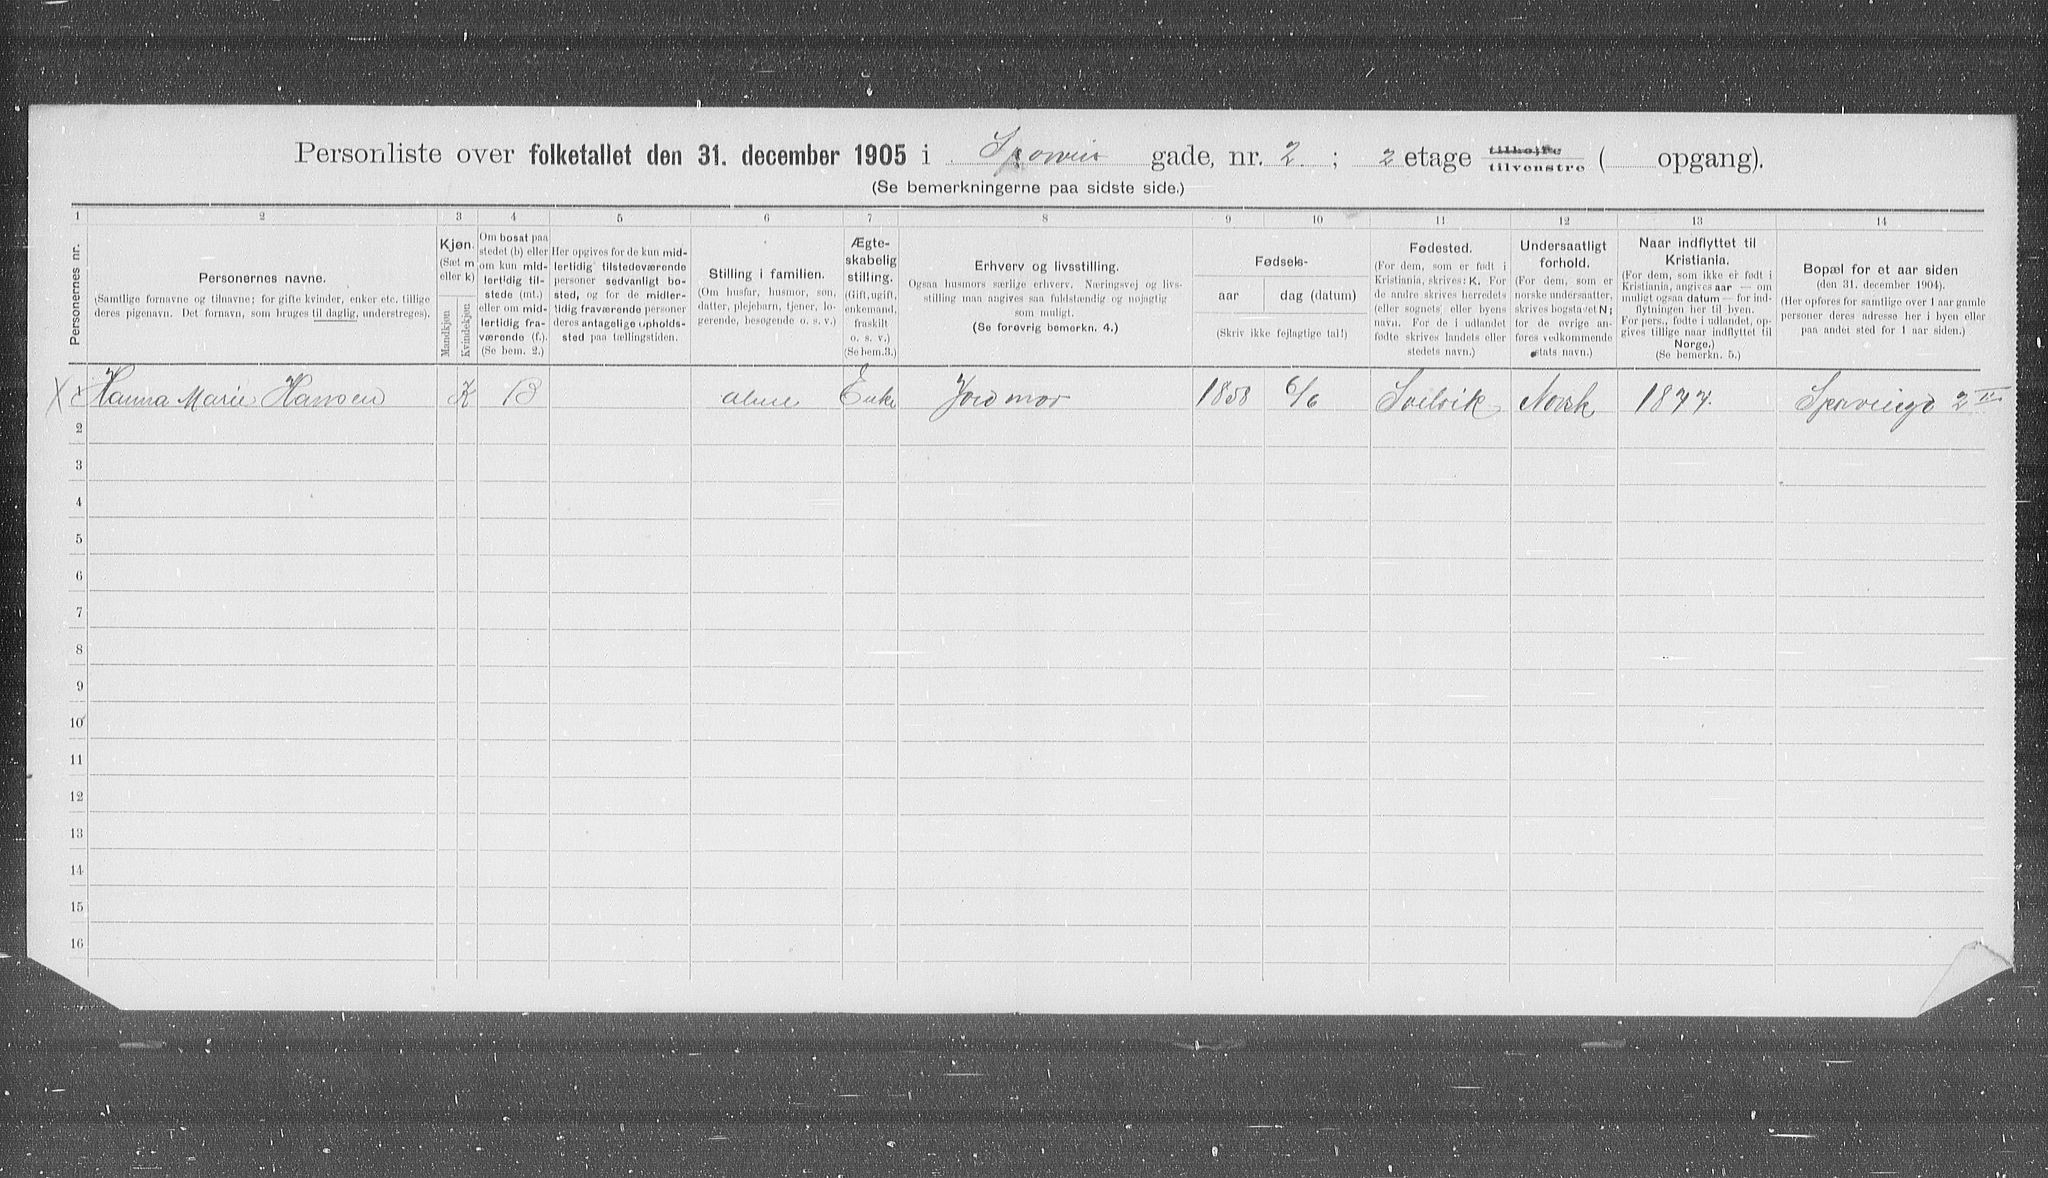 Personliste over folketallet den 31. december 1905 i Sperveis gade, nr. 2 ; 2 etage tilhøjre tilvenstre ( opgang).
(Se bemerkningerne paa sidste side.)
1 2 3 4 5 6 7 8 9 10 11 12 13 14
Personernes nr.
Personernes navne.
(Samtlige fornavne og tilnavne; for gifte kvinder, enker etc. tillige
deres pigenavn. Det fornavn, som bruges til daglig, understreges).
Kjøn.
(Sæt m
eller k)
Mandkjøn
Kvindekjøn
Om bosat paa
stedet (b) eller
om kun mid-
lertidig til-
stede (mt.)
eller om mid-
lertidig fra-
værende (f.).
(Se bem. 2.)
Her opgives for de kun mid-
lertidig tilstedeværende
personer sedvanlig bo-
sted, og for de midler-
tidig fraværende personer
deres antagelige opholds-
sted paa tællingstiden.
Stilling i familien.
(Om husfar, husmor, søn,
datter, plejebarn, tjener, lo-
gerende, besøgende o. s. v.)
Ægte-
skabelig
stilling.
(Gift, ugift,
enkemand,
fraskilt
o. s. v.)
(Se bem.3.)
Erhverv og livsstilling.
Ogsaa husmors særlige erhverv. Næringsvej og livs-
stilling maa angives saa fuldstændig og nøjagtig
som muligt.
(Se forøvrig bemerkn. 4.)
Fødsels-
aar
dag (datum)
(Skriv ikke fejlagtige tal!)
Fødested.
(For dem, som er født i
Kristiania, skrives: K. For
de andre skrives herredets
(eller sognets) eller byens
navn. For de i udlandet
fødte skrives landets eller
stedets navn.)
Undersaatligt
forhold.
(For dem, som er
norske undersaatter,
skrives bogstavet N;
for de øvrige an-
føres vedkommende
stats navn.)
Naar indflyttet til
Kristiania.
(For dem, som ikke er født i
Kristiania, angives aar — om
muligt ogsaa datum — for ind-
flytningen her til byen.
For pers., fødte i udlandet, op-
gives tillige naar indflyttet til
Norge.)
(Se bemerkn. 5.)
Bopæl for et aar siden
(den 31. december 1904).
(Her opføres for samtlige over 1 aar gamle
personer deres adresse her i byen eller
paa andet sted for 1 aar siden.)
X Hanna Marie Hansen K B alene Enke Jordmor 1858 6/6 Svelvik Norsk 1877. Sperveigd 2 II
2
3
4
5
6
7
8
9
10
11
12
13
14
15
16